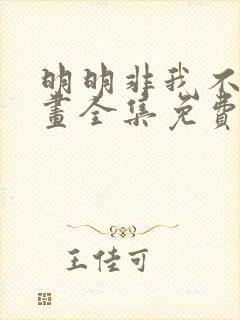 明明非我不
畫全集免費
王佳可